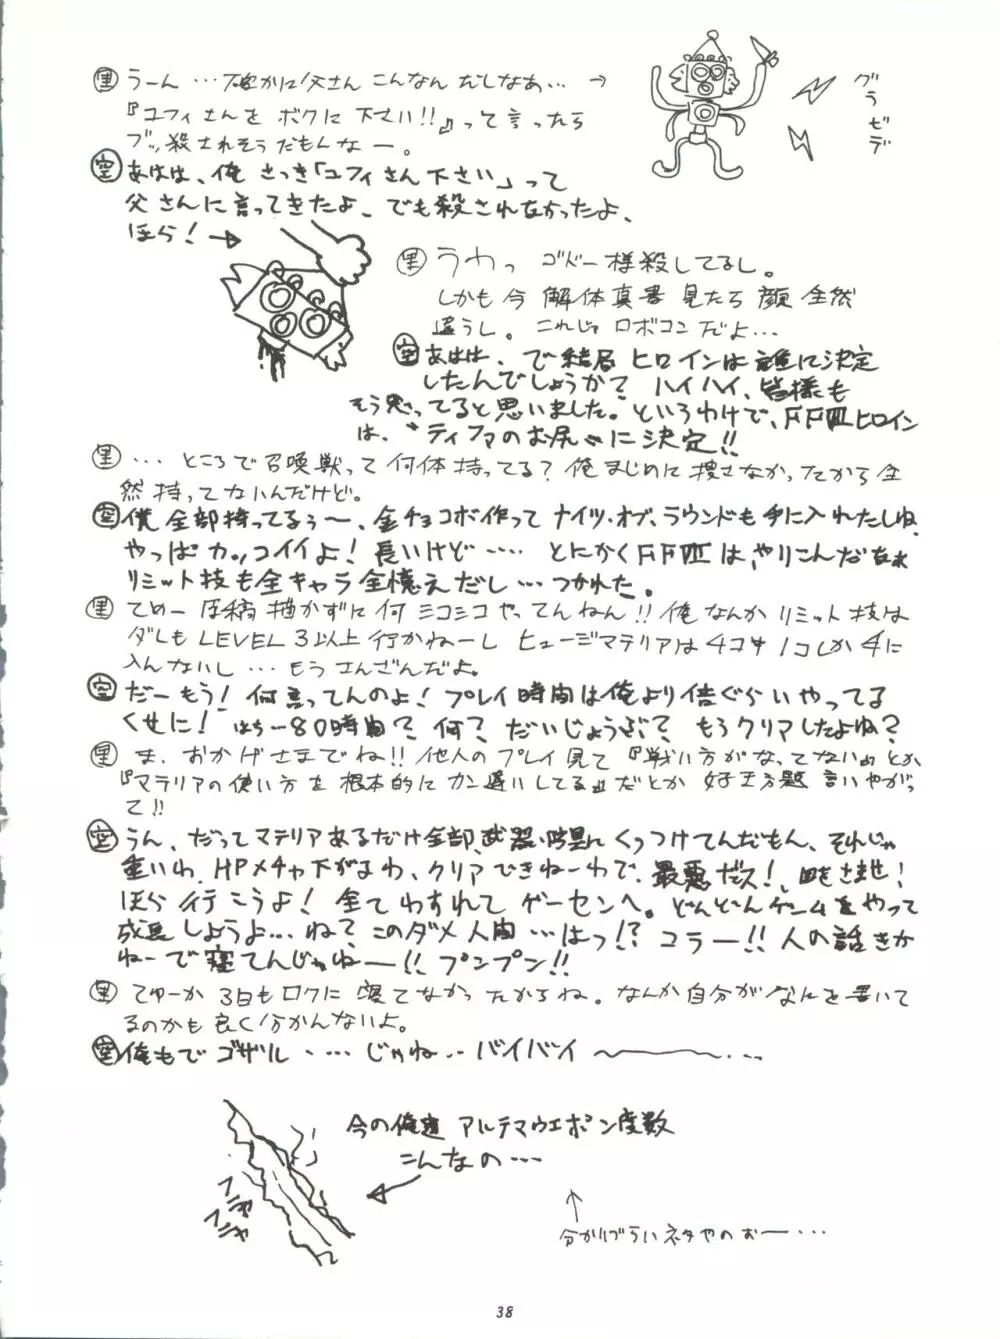 黒 うーん …確かに父さん こんなん だしなあ… →
グラビデ
『ユフィさんを ボクに 下さい!!』って言ったら
ブッ殺されそうだもんなー。
空 あはは、俺 さっき「ユフィさん下さい」って
父さんに言ってきたよ、でも殺されなかったよ、
ほら!→
黒 うわっ ゴドー様殺してるし。
しかも今 解体真書 見たら 顔 全然
違うし。これじゃ ロボコンだよ…
空 あはは、で結局 ヒロインは誰に決定
したんでしょうか? ハイハイ、皆様も
そう思ってると思いました。というわけで、FFⅦヒロイン
は、“ティファのお尻”に決定!!
黒 … ところで召喚獣って何体持ってる?俺まじめに捜さなかったから全
然持ってないんだけど。
空 僕全部持ってるぅ〜、金チョコボ作って ナイツ・オブ・ラウンドも手に入れたしね
やっぱカッコイイよ!長いけど…… とにかくFFⅦは、やりこんだなぁ
リミット技も全キャラ全憶えだし…つかれた。
黒 てめー原稿描かずに何ミコミコやってんねん!!俺なんかリミット技は
ダレもLEVEL3以上行かねーし ヒュージマテリアは4コ中1コしか手に
入んないし …もうさんざんだよ。
空 だーもう!何言ってんのよ!プレイ時間は俺より倍ぐらいやってる
くせに! はちー80時間?何?だいじょうぶ? もうクリアしたよね?
黒 ま、おかげさまでね!!他人のプレイ見て『戦い方がなってない』とか
『マテリアの使い方を根本的にカン違いしてる』だとか 好き方題 言いやがっ
て!!
空 うん、だってマテリアあるだけ全部、武器・防具にくっつけてんだもん、それじゃ
重いわ、HPメチャ下がるわ、クリアできねーわで、最悪だス!、目をさませ!
ほら行こうよ!全てわすれてゲーセンへ。どんどんゲームをやって
成長しようよ…ね?このダメ人間…はっ!?コラー!!人の話きか
ねーで寝てんじゃねー!!プンプン!!
黒 てゆーか3日もロクに寝てなかったからね。なんか自分がなにを書いて
るのかも良く分かんないよ。
空 俺もでゴザル・…じゃね‥バイバイ〜
今の俺達 アルテマウエポン度数
こんなの…
フニャフニャ
↑
分かりづらいネタやのおー…
38